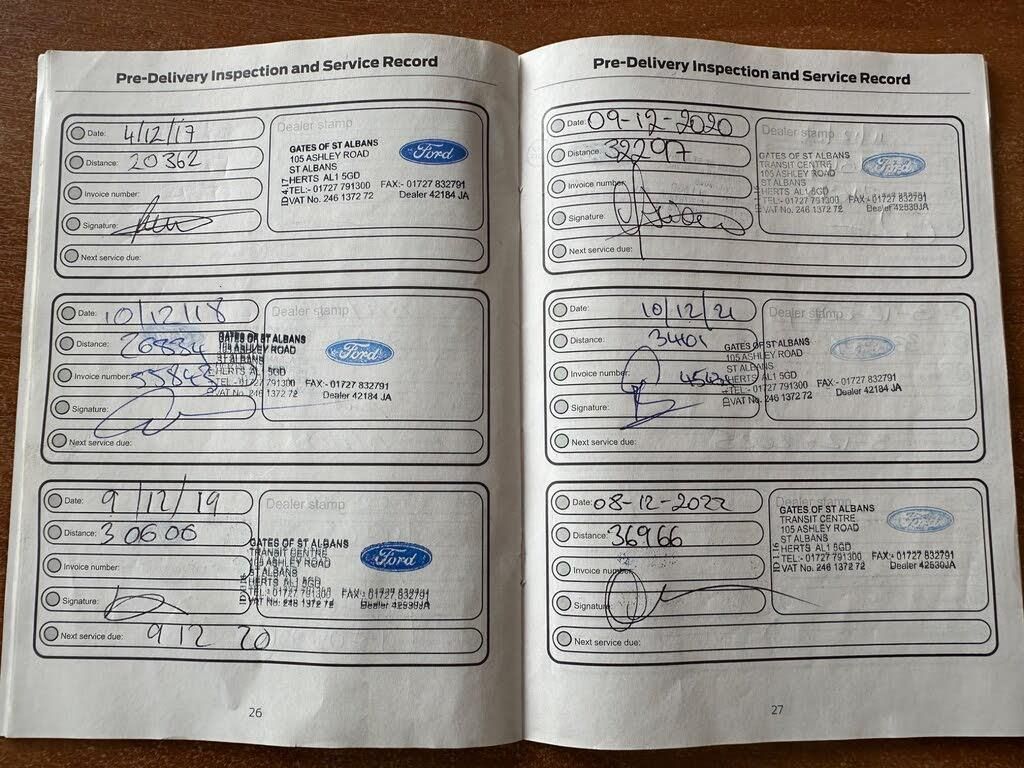 Pre-Delivery Inspection and Service Record
Date: 4/12/17
Distance: 20362
Invoice number:
Signature:
Next service due:
Dealer stamp
GATES OF ST ALBANS
105 ASHLEY ROAD
ST ALBANS
HERTS AL1 5GD
TEL:- 01727 791300 FAX:- 01727 832791
VAT No. 246 1372 72 Dealer 42184 JA
Ford
Date: 10/12/18
Distance: 26884
Invoice number:
Signature:
Next service due:
Dealer stamp
GATES OF ST ALBANS
105 ASHLEY ROAD
ST ALBANS
HERTS AL1 5GD
TEL:- 01727 791300 FAX:- 01727 832791
VAT No. 246 1372 72 Dealer 42184 JA
Ford
Date: 9/12/19
Distance: 30606
Invoice number:
Signature:
Next service due: 9 12 20
Dealer stamp
GATES OF ST ALBANS
TRANSIT CENTRE
105 ASHLEY ROAD
ST ALBANS
HERTS AL1 5GD
TEL:- 01727 791300 FAX:- 01727 832791
VAT No. 246 1372 72 Dealer 42630JA
Ford
26
Pre-Delivery Inspection and Service Record
Date: 09-12-2020
Distance: 32297
Invoice number:
Signature:
Next service due:
Dealer stamp
GATES OF ST ALBANS
TRANSIT CENTRE
105 ASHLEY ROAD
ST ALBANS
HERTS AL1 5GD
TEL:- 01727 791300 FAX:- 01727 832791
VAT No. 246 1372 72 Dealer 42630JA
Ford
Date: 10/12/21
Distance: 34101
Invoice number:
Signature:
Next service due:
Dealer stamp
GATES OF ST ALBANS
105 ASHLEY ROAD
ST ALBANS
HERTS AL1 5GD
TEL:- 01727 791300 FAX:- 01727 832791
VAT No. 246 1372 72 Dealer 42184 JA
Ford
Date: 08-12-2022
Distance: 36966
Invoice number:
Signature:
Next service due:
Dealer stamp
GATES OF ST ALBANS
TRANSIT CENTRE
105 ASHLEY ROAD
ST ALBANS
HERTS AL1 5GD
TEL:- 01727 791300 FAX:- 01727 832791
VAT No. 246 1372 72 Dealer 42630JA
Ford
27